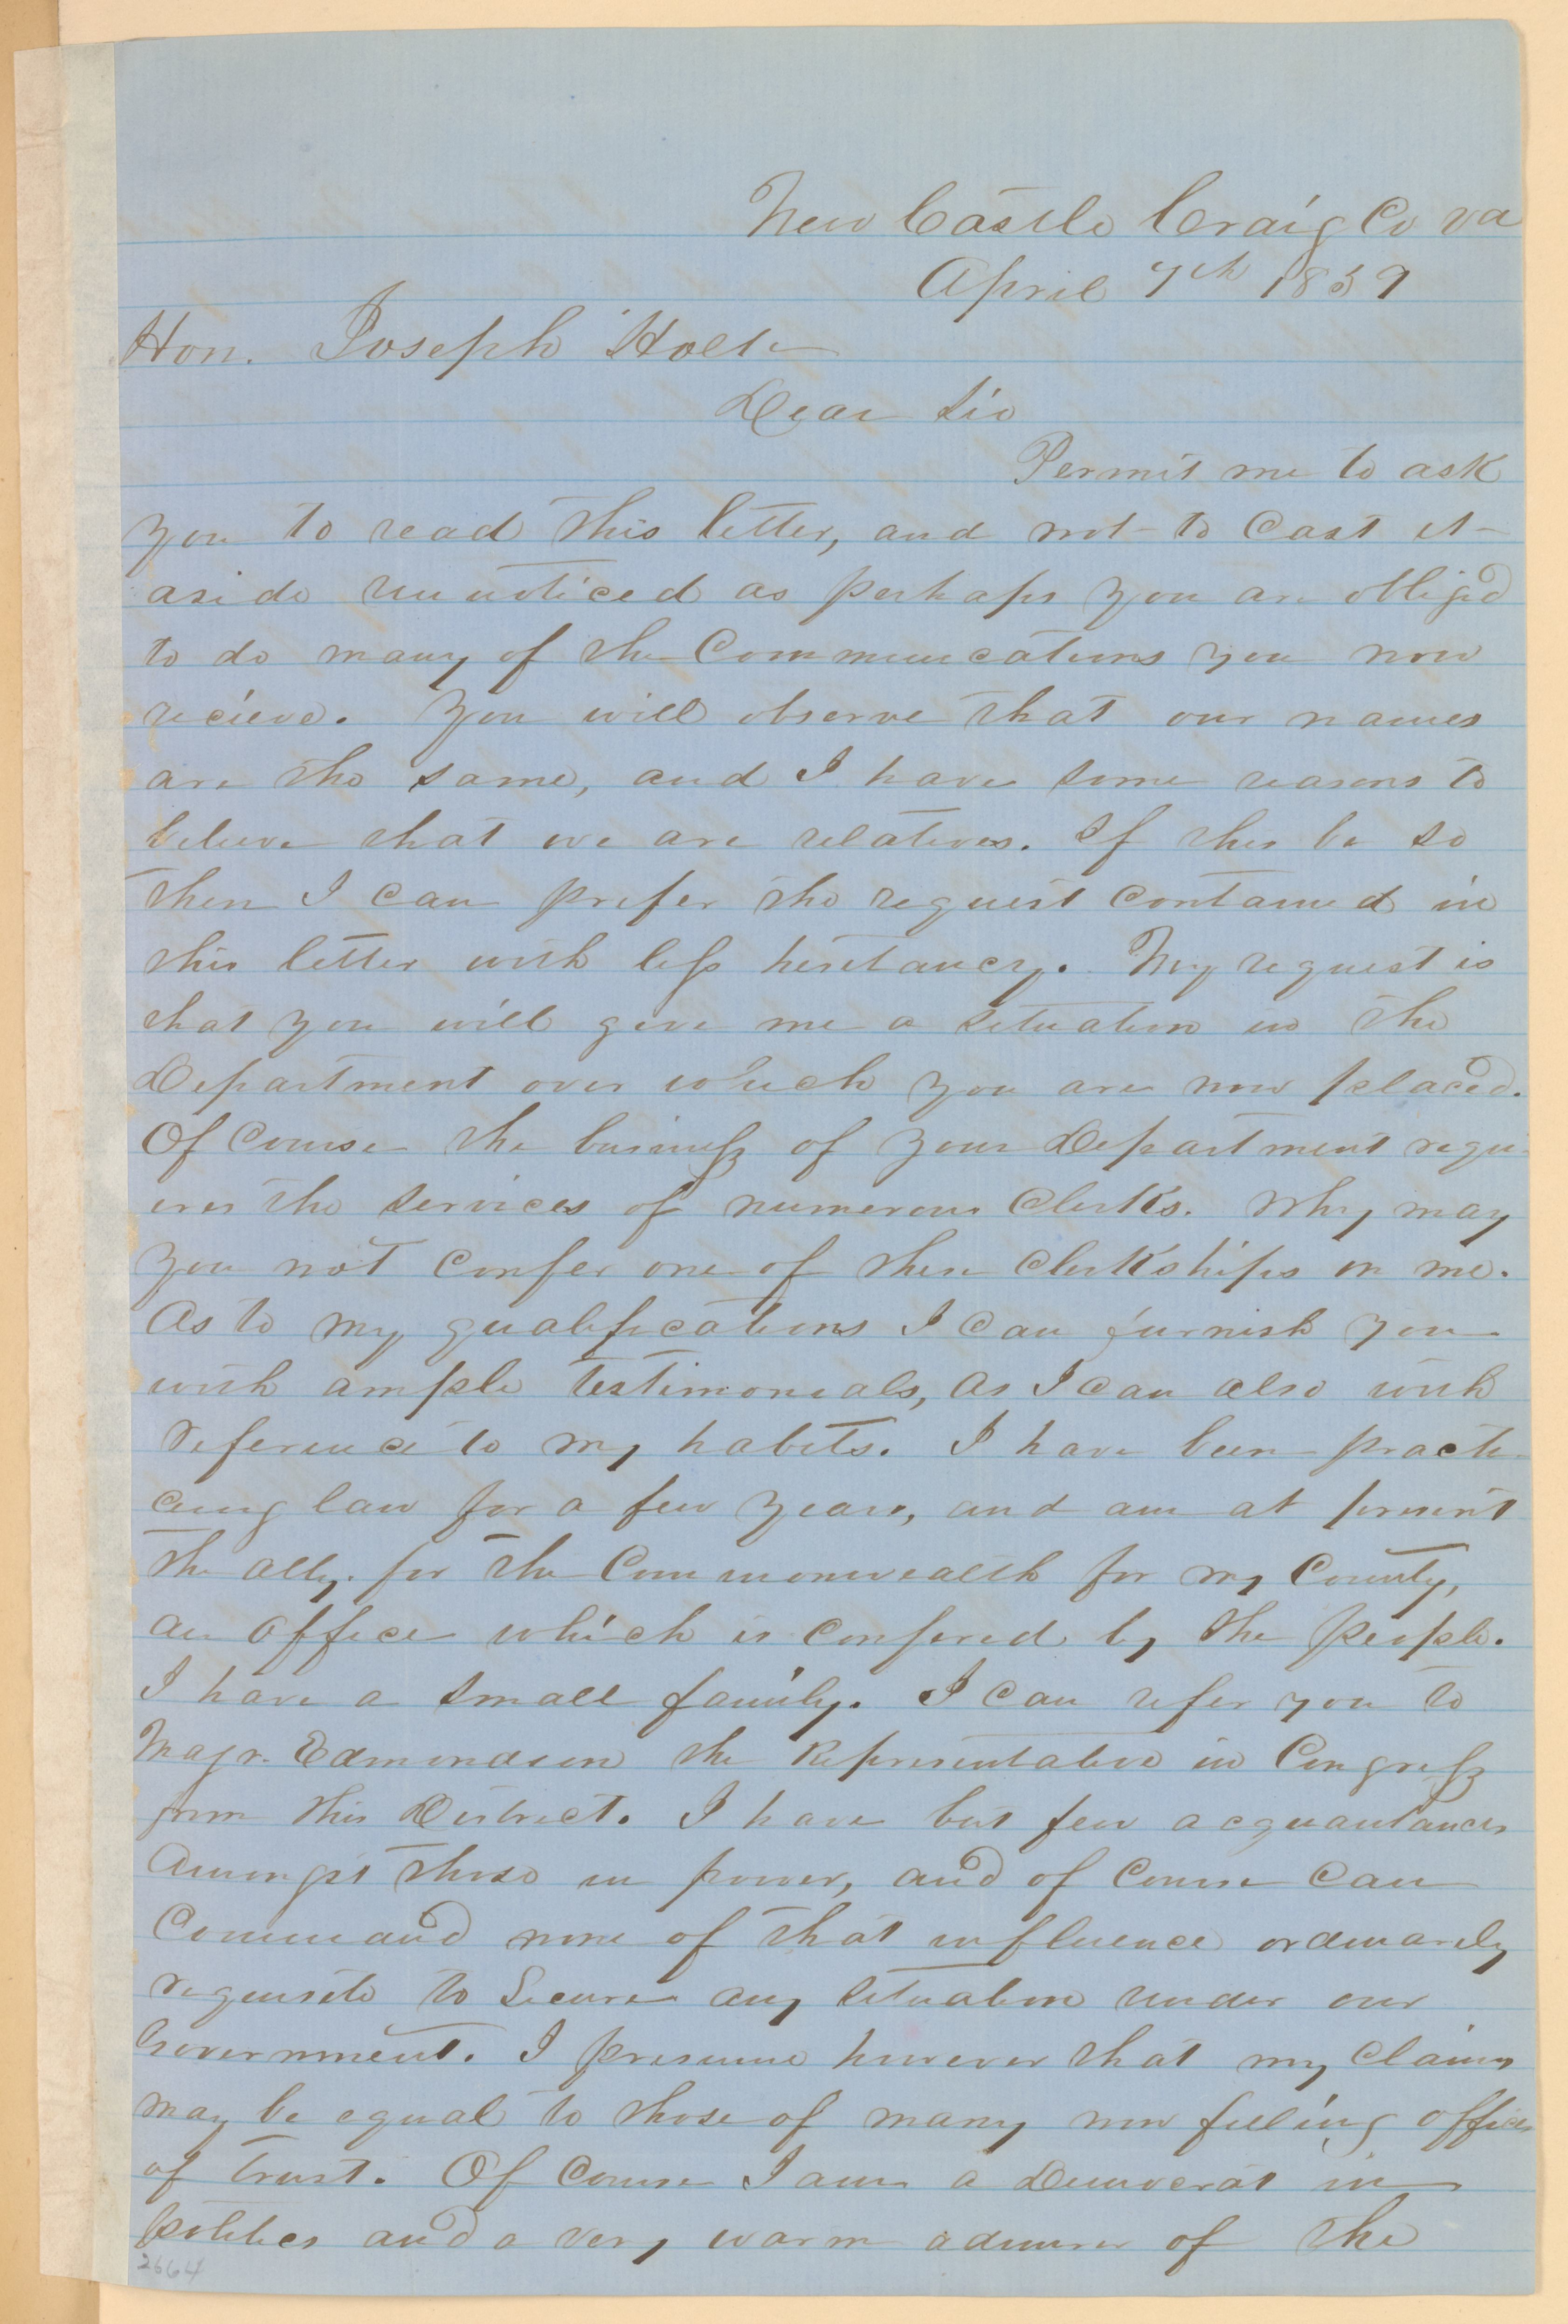 New Castle Craig Co Va
April 7th 1859
Hon. Joseph Holt
Dear Sir
Permit me to ask
you to read this letter, and not to cast it
aside unnoticed as perhaps you are obliged
to do many of the Communications you now
recieve. You will observe that our names
are the same, and I have some reasons to
believe that we are relatives. If this be so
then I can prefer the request contained in
this letter with less hesitancy. My request is
that you will give me a situation in the
Department over which you are now placed.
Of Course the business of your Department requ-
ires the services of numerous Clerks. Why may
you not confer one of these Clerkships on me.
As to my qualifications I can furnish you
with ample testimonials, as I can also with
reference to my habits. I have been practi-
cing law for a few years, and am at present
the atty. for the Commonwealth for my County,
an office which is confered by the people.
I have a small family. I can refer you to
Majr. Edmondson the Representative in Congress
from this District. I have but few acquantances
Amongst those in power, and of Course Can
Command none of that influence ordinarily
requisite to Secure any situation under our
Government. I presume however that my Claims
may be equal to those of many now filling offices
of trust. Of Course I am a Democrat in
politics and a very warm admirer of the
2664